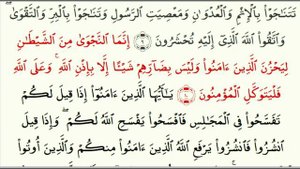 تَتَنَاجَوْا۟ بِالْإِثْمِ وَالْعُدْوَانِ وَمَعْصِيَتِ الرَّسُولِ وَتَنَاجَوْا۟ بِالْبِرِّ وَالتَّقْوَىٰ
وَاتَّقُوا۟ اللَّهَ الَّذِي إِلَيْهِ تُحْشَرُونَ ۝٩ إِنَّمَا النَّجْوَىٰ مِنَ الشَّيْطَانِ
لِيَحْزُنَ الَّذِينَ ءَامَنُوا۟ وَلَيْسَ بِضَارِّهِمْ شَيْئًا إِلَّا بِإِذْنِ اللَّهِ ۚ وَعَلَى اللَّهِ
فَلْيَتَوَكَّلِ الْمُؤْمِنُونَ ۝١٠ يَـٰٓأَيُّهَا الَّذِينَ ءَامَنُوٓا۟ إِذَا قِيلَ لَكُمْ
تَفَسَّحُوا۟ فِي الْمَجَـٰلِسِ فَافْسَحُوا۟ يَفْسَحِ اللَّهُ لَكُمْ ۖ وَإِذَا قِيلَ
انشُزُوا۟ فَانشُزُوا۟ يَرْفَعِ اللَّهُ الَّذِينَ ءَامَنُوا۟ مِنكُمْ وَالَّذِينَ أُوتُوا۟